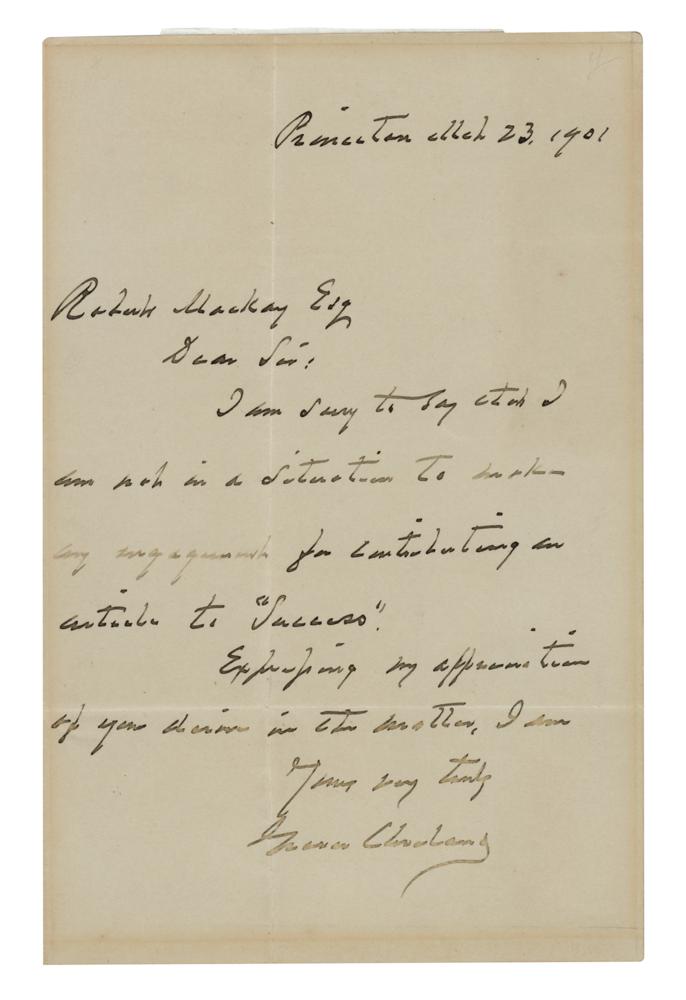 Princeton Mch 23. 1901
Robert Mackay Esq
Dear Sir:
I am sorry to say that I
am not in a situation to make
any engagement for contributing an
article to "Success".
Expressing my appreciation
of your desire in the matter, I am
Yours very truly
Grover Cleveland